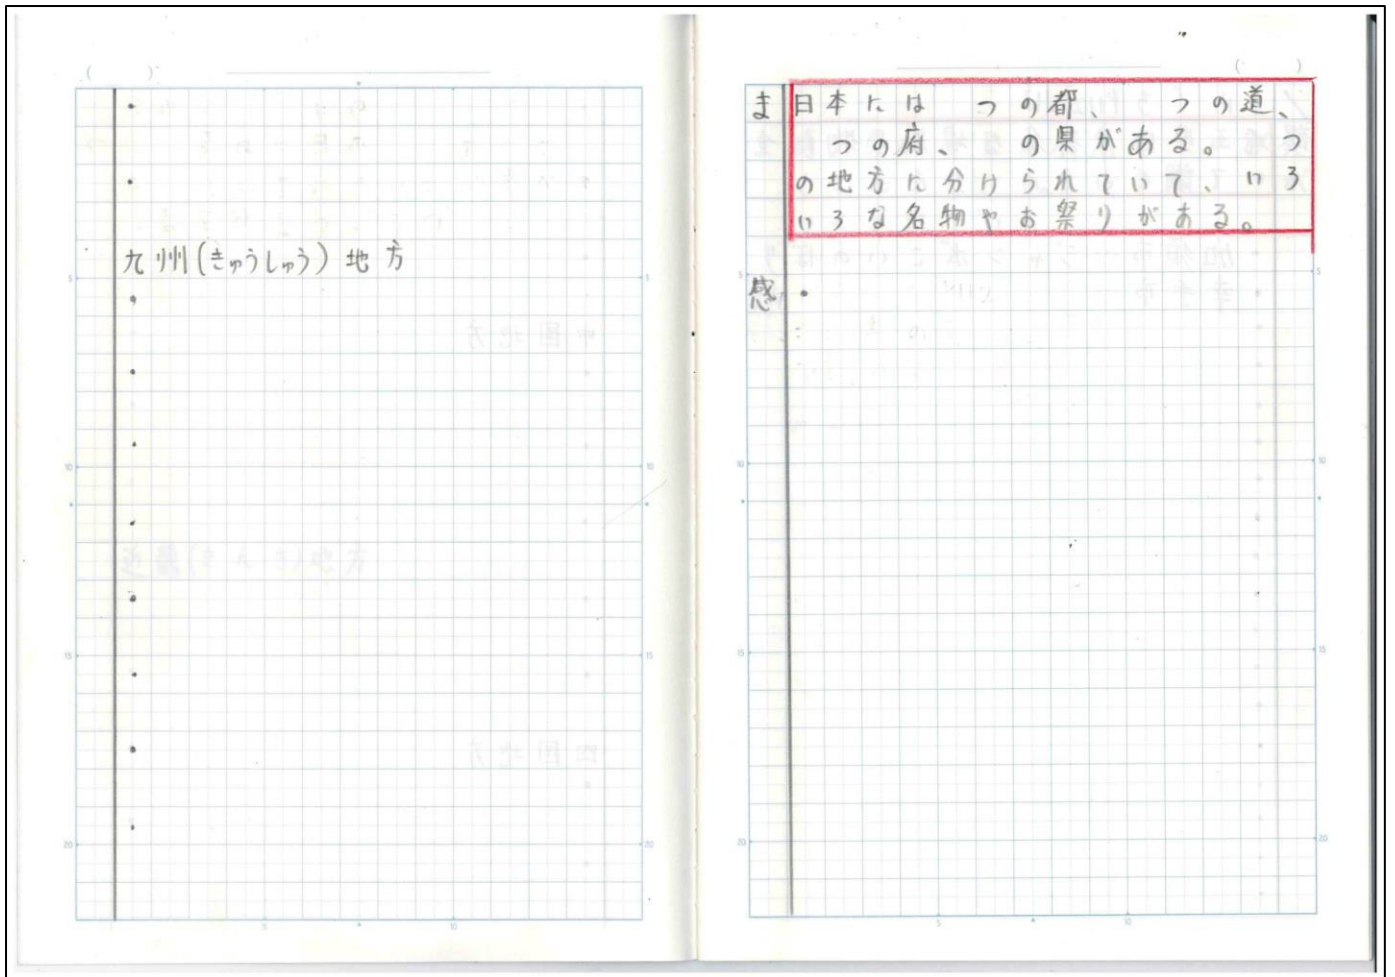 九州(きゅうしゅう)地方
ま
日本には　つの都、　つの道、
　つの府、　の県がある。　つ
の地方に分けられていて、いろ
いろな名物やお祭りがある。
感